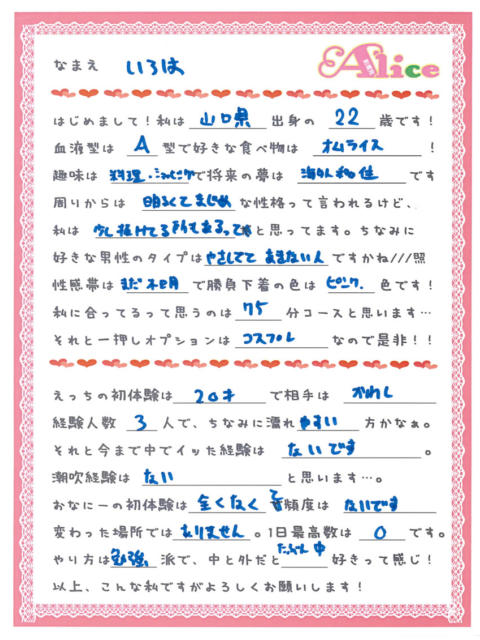 なまえ いろは
Alice
はじめまして！私は 山口県 出身の 22 歳です！
血液型は A 型で好きな食べ物は オムライス ！
趣味は 料理・ショッピングで将来の夢は 海外移住 です
周りからは 明るくてまじめ な性格って言われるけど、
私は 少し抜けてる所もある。 と思ってます。ちなみに
好きな男性のタイプは ですかね///照
性感帯は まだ不明 で勝負下着の色は ピンク. 色です！
私に合ってるって思うのは 75 分コースと思います…
それと一押しオプションは コスプレ なので是非！！
えっちの初体験は 20才 で相手は かれし
経験人数 3 人で、ちなみに濡れ やすい 方かなぁ。
それと今まで中でイッた経験は ないです 。
潮吹経験は ない と思います…。
おなにーの初体験は 全くなくて 頻度は ないです
変わった場所では ありません 。1日最高数は 0 です。
やり方は 勉強 派で、中と外だと たぶん 中 好きって感じ！
以上、こんな私ですがよろしくお願いします！